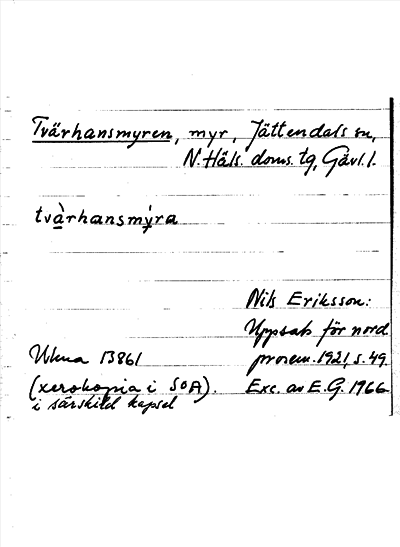 Tvärhansmyren, myr, Jättendals sn,
N. Häls. doms. tg, Gävl. l.
tvàrhansmy̖ra
Nils Eriksson:
Uppsats för nord
prosem. 1921, s. 49.
Ulma 13861
(xerokopia i SOA).
i särskild kapsel
Exc. av E. G. 1966